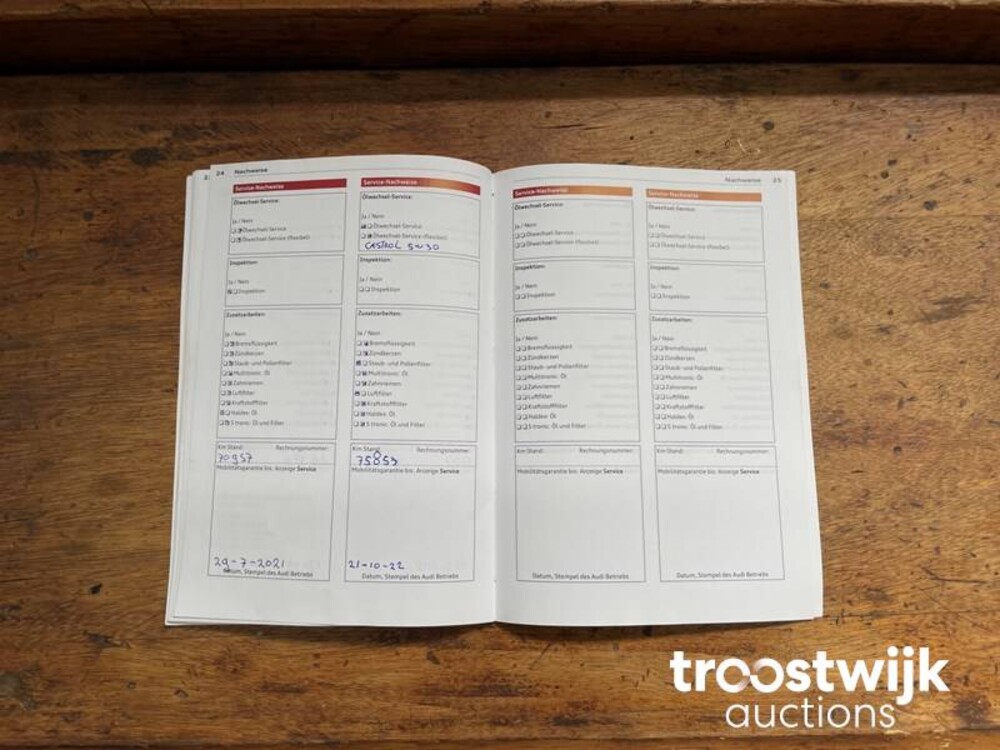 24 Nachweise
Service-Nachweise
Ölwechsel-Service:
Ja / Nein
Ölwechsel-Service
Ölwechsel-Service (flexibel)
Inspektion:
Ja / Nein
Inspektion
Zusatzarbeiten:
Ja / Nein
Bremsflüssigkeit
Zündkerzen
Staub- und Pollenfilter
Multitronic: Öl
Zahnriemen
Luftfilter
Kraftstofffilter
Haldex: Öl
S tronic: Öl und Filter
Km-Stand: Rechnungsnummer:
70957
Mobilitätsgarantie bis: Anzeige Service
29-7-2021
Datum, Stempel des Audi Betriebs
Service-Nachweise
Ölwechsel-Service:
Ja / Nein
Ölwechsel-Service
Ölwechsel-Service (flexibel)
CASTROL 5w30
Inspektion:
Ja / Nein
Inspektion
Zusatzarbeiten:
Ja / Nein
Bremsflüssigkeit
Zündkerzen
Staub- und Pollenfilter
Multitronic: Öl
Zahnriemen
Luftfilter
Kraftstofffilter
Haldex: Öl
S tronic: Öl und Filter
Km-Stand: Rechnungsnummer:
75853
Mobilitätsgarantie bis: Anzeige Service
21-10-22
Datum, Stempel des Audi Betriebs
Nachweise 25
Service-Nachweise
Ölwechsel-Service:
Ja / Nein
Ölwechsel-Service
Ölwechsel-Service (flexibel)
Inspektion:
Ja / Nein
Inspektion
Zusatzarbeiten:
Ja / Nein
Bremsflüssigkeit
Zündkerzen
Staub- und Pollenfilter
Multitronic: Öl
Zahnriemen
Luftfilter
Kraftstofffilter
Haldex: Öl
S tronic: Öl und Filter
Km-Stand: Rechnungsnummer:
Mobilitätsgarantie bis: Anzeige Service
Datum, Stempel des Audi Betriebs
Service-Nachweise
Ölwechsel-Service:
Ja / Nein
Ölwechsel-Service
Ölwechsel-Service (flexibel)
Inspektion:
Ja / Nein
Inspektion
Zusatzarbeiten:
Ja / Nein
Bremsflüssigkeit
Zündkerzen
Staub- und Pollenfilter
Multitronic: Öl
Zahnriemen
Luftfilter
Kraftstofffilter
Haldex: Öl
S tronic: Öl und Filter
Km-Stand: Rechnungsnummer:
Mobilitätsgarantie bis: Anzeige Service
Datum, Stempel des Audi Betriebs
troostwijk
auctions